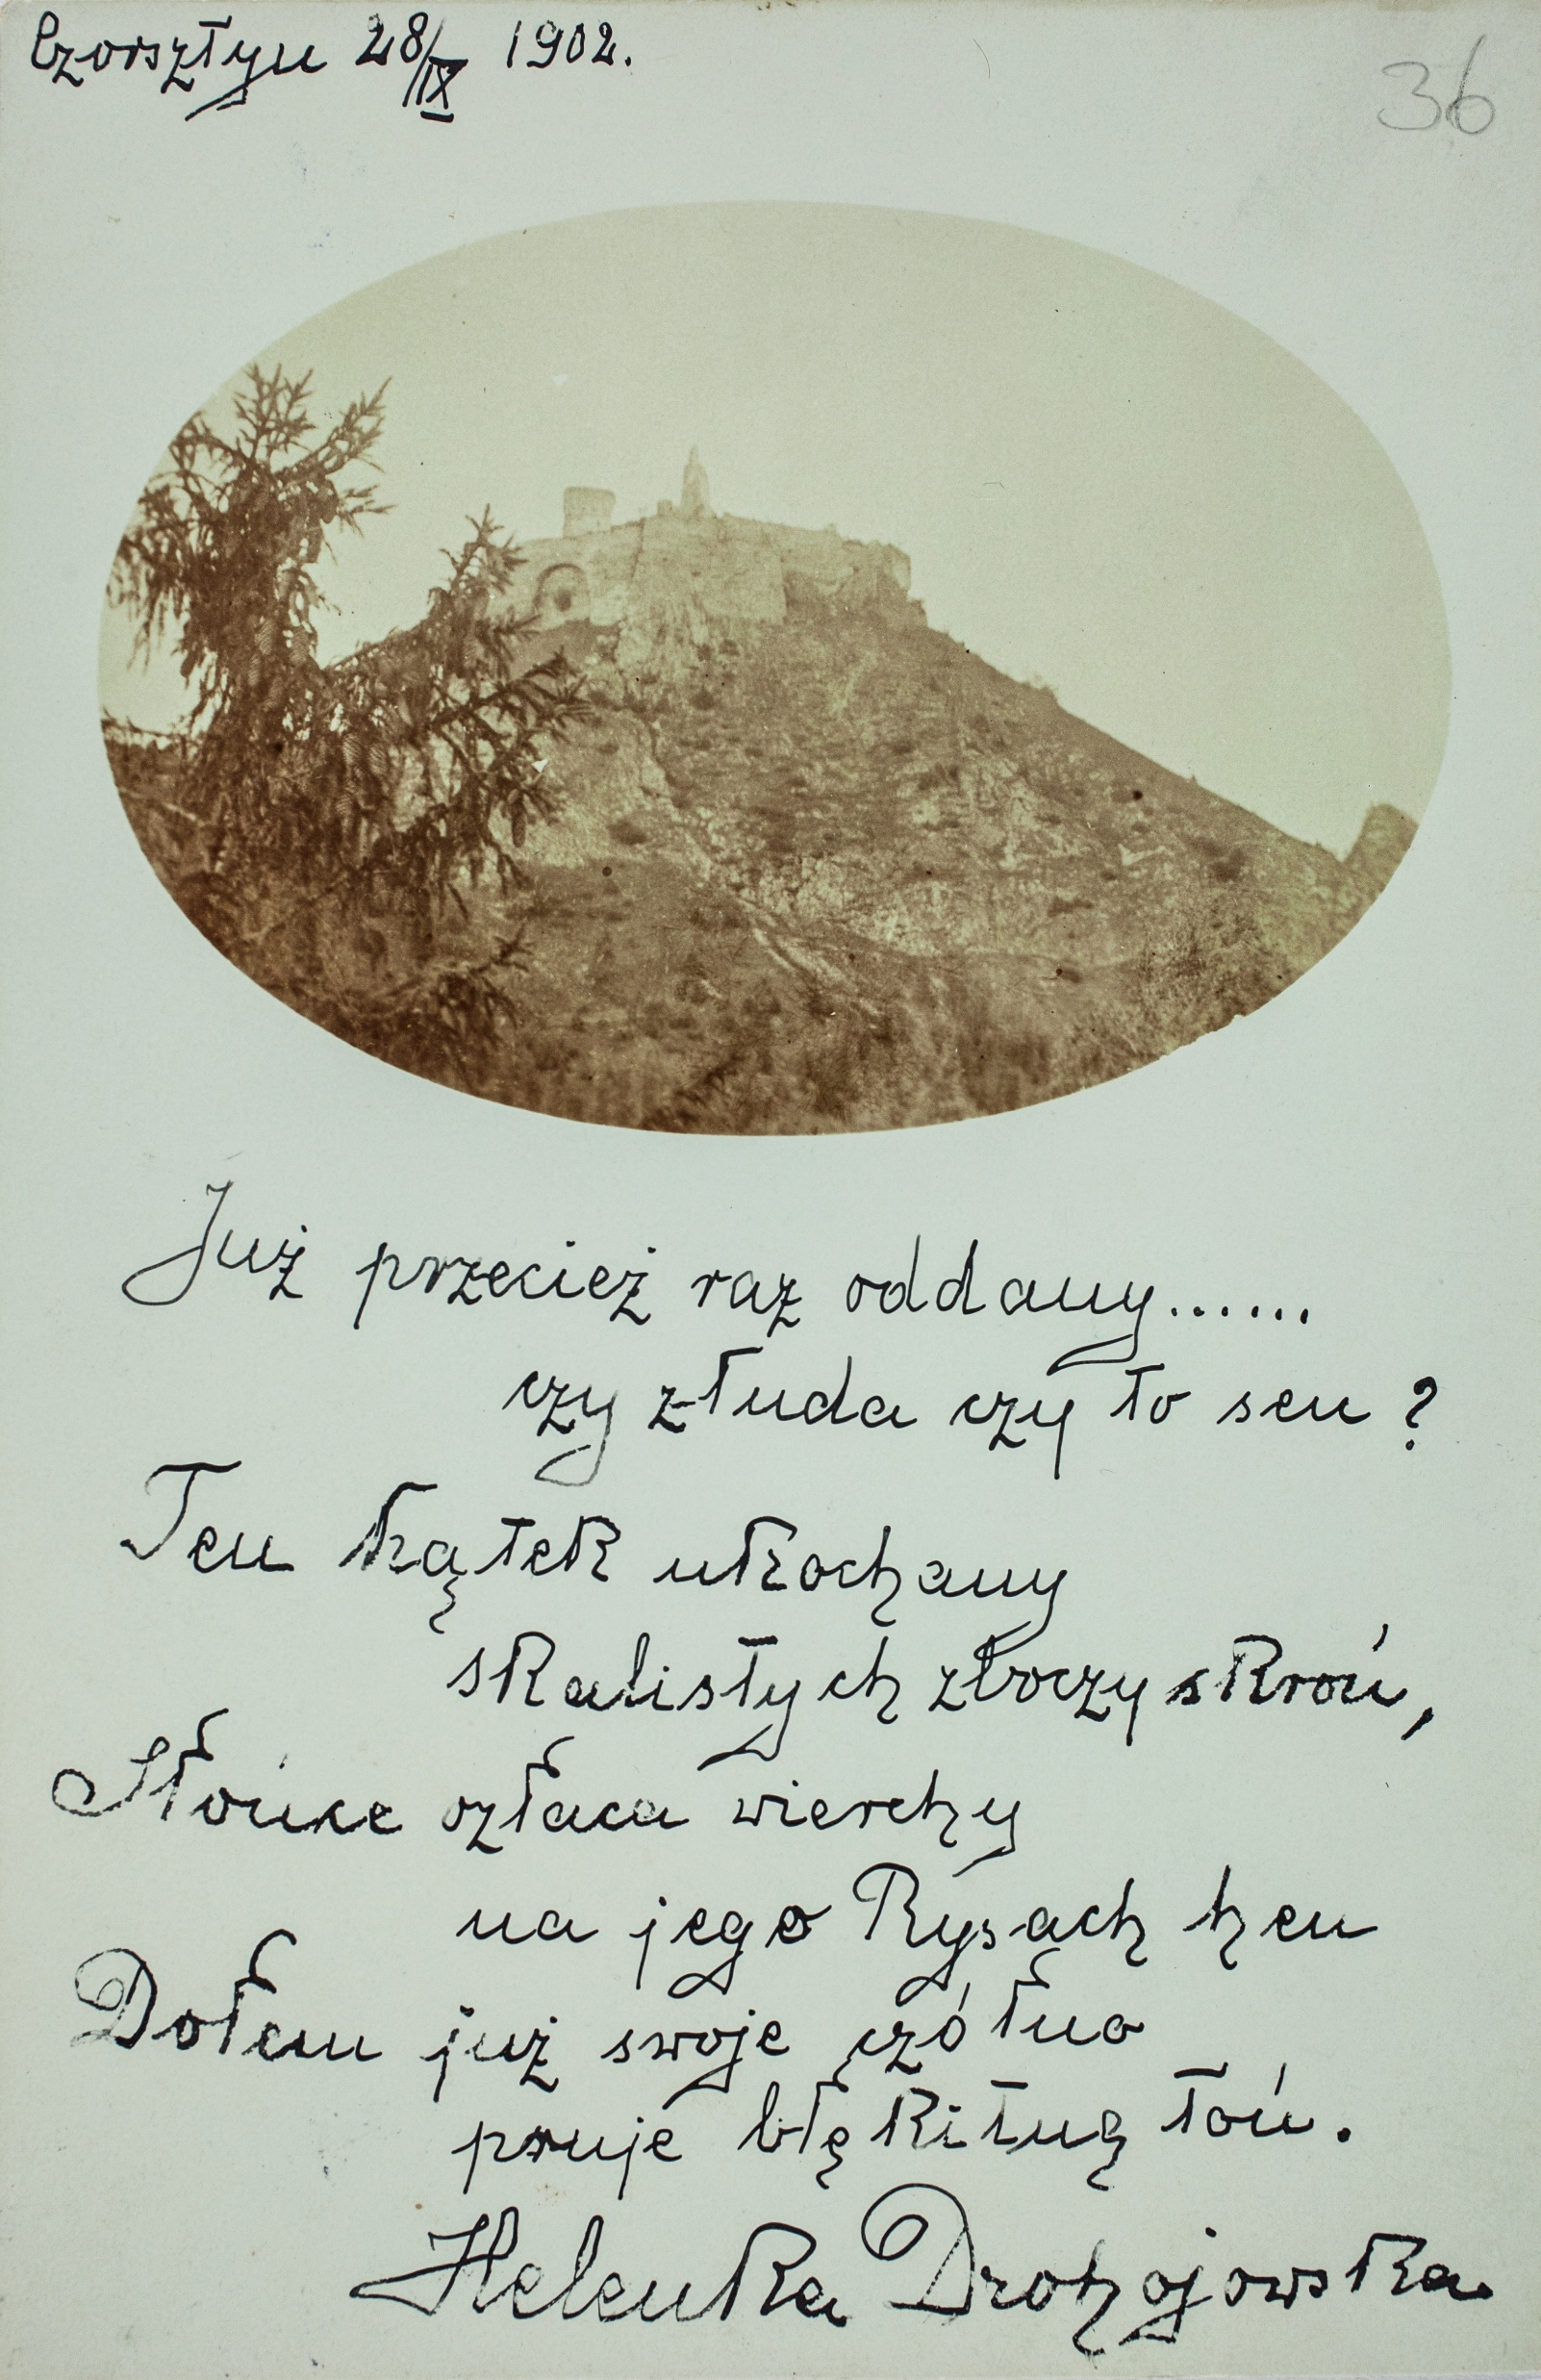 Czorsztyn 28/IX 1902.
36
Już przecież raz oddany......
czy złuda czy to sen?
Ten kątek ukochany
skalistych zboczy skroń,
Słońce ozłaca wierchy
na jego Rysach hen
Dołem już swoje czółno
pruje błękitną toń.
Helenka Drohojowska